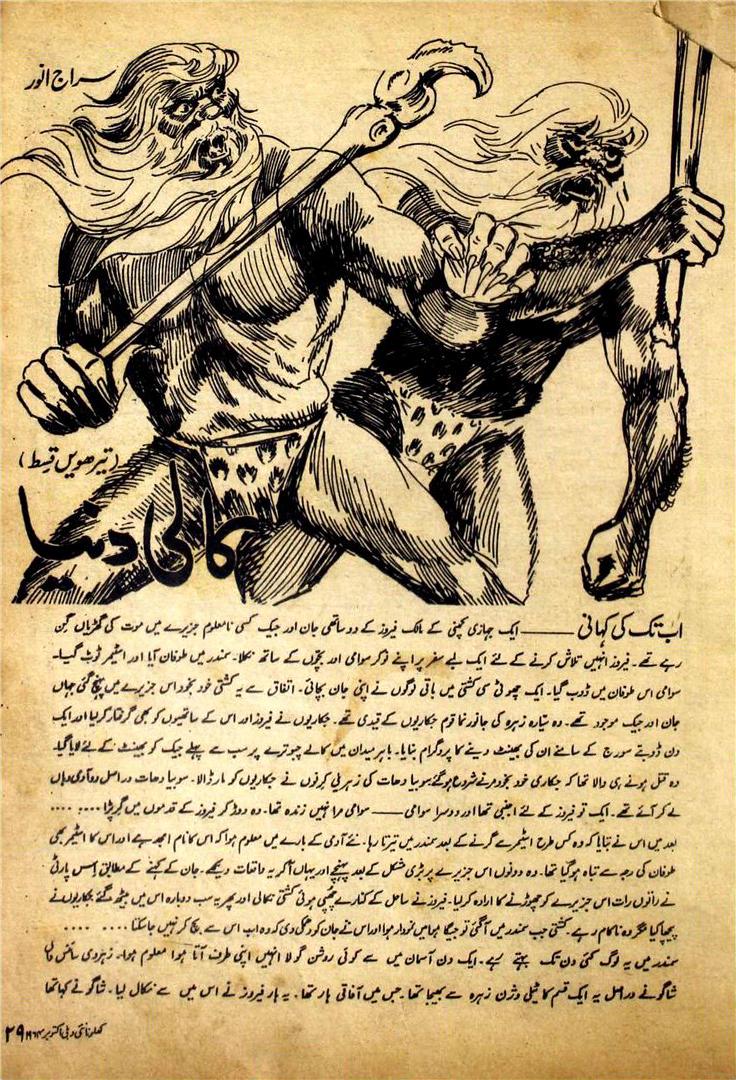 سراج انور
(تیرھویں قسط)
کالی دنیا
اب تک کی کہانی ——— ایک جہازی کمپنی کے مالک فیروز کے دو ساتھی جان اور جیک کسی نامعلوم جزیرے میں موت کی گھڑیاں گِن
رہے تھے۔ فیروز انہیں تلاش کرنے کے لئے ایک لمبے سفر پر اپنے نوکر سوامی اور بچّوں کے ساتھ نکلا۔ سمندر میں طوفان آیا اور اسٹیمر ٹوٹ گیا۔
سوامی اس طوفان میں ڈوب گیا۔ ایک چھوٹی سی کشتی میں باقی لوگوں نے اپنی جان بچائی۔ اتفاق سے یہ کشتی خود بخود اس جزیرے میں پہنچ گئی جہاں
جان اور جیک موجود تھے۔ وہ سیارہ زہرہ کی جانور نما قوم جکاریوں کے قیدی تھے۔ جکاریوں نے فیروز اور اس کے ساتھیوں کو بھی گرفتار کر لیا اور ایک
دن ڈوبتے سورج کے سامنے ان کی بھینٹ دینے کا پروگرام بنایا۔ باہر میدان میں کالے چبوترے پر سب سے پہلے جیک کو بھینٹ کے لئے لایا گیا۔
وہ قتل ہونے ہی والا تھا کہ جکاری خود بخود مرنے شروع ہو گئے سوبیا دھات کی زہریلی کرنوں نے جکاریوں کو مار ڈالا۔ سوبیا دھات دراصل دو آدمی وہاں
لے کر آئے تھے۔ ایک تو فیروز کے لئے اجنبی تھا اور دوسرا سوامی —— سوامی مرا نہیں زندہ تھا۔ وہ دوڑ کر فیروز کے قدموں میں گر پڑا . . . . . . .
بعد میں اس نے بتایا کہ وہ کس طرح اسٹیمر سے گرنے کے بعد سمندر میں تیرتا رہا۔ نئے آدمی کے بارے میں معلوم ہوا کہ اس کا نام امجد ہے اور اس کا اسٹیمر بھی
طوفان کی وجہ سے تباہ ہو گیا تھا۔ وہ دونوں اس جزیرے پر بڑی مشکل کے بعد پہنچے اور یہاں آ کر یہ واقعات دیکھے۔ جان کے کہنے کے مطابق اس پارٹی
نے راتوں رات اس جزیرے کو چھوڑنے کا ارادہ کر لیا۔ فیروز نے ساحل کے کنارے چھپی ہوئی کشتی نکالی اور پھر یہ سب دوبارہ اس میں بیٹھ گئے جکاریوں نے
پیچھا کیا مگر وہ ناکام رہے۔ کشتی جب سمندر میں آ گئی تو جیگا ہوا میں نمودار ہوا اور اس نے جان کو دھمکی دی کہ وہ اب اس سے بچ کر نہیں جا سکتا . . . . . . .
سمندر میں یہ لوگ کئی دن تک بہتے رہے۔ ایک دن آسمان میں سے کوئی روشن گولا انہیں اپنی طرف آتا ہوا معلوم ہوا۔ زہروی سائنس داں
شاگو نے دراصل یہ ایک قسم کا ٹیلی وژن زہرہ سے بھیجا تھا۔ جس میں آفاقی ہار تھا۔ یہ ہار فیروز نے اس میں سے نکال لیا۔ شاگو نے کہا تھا
کھلونا نئی دہلی اکتوبر ۲۹